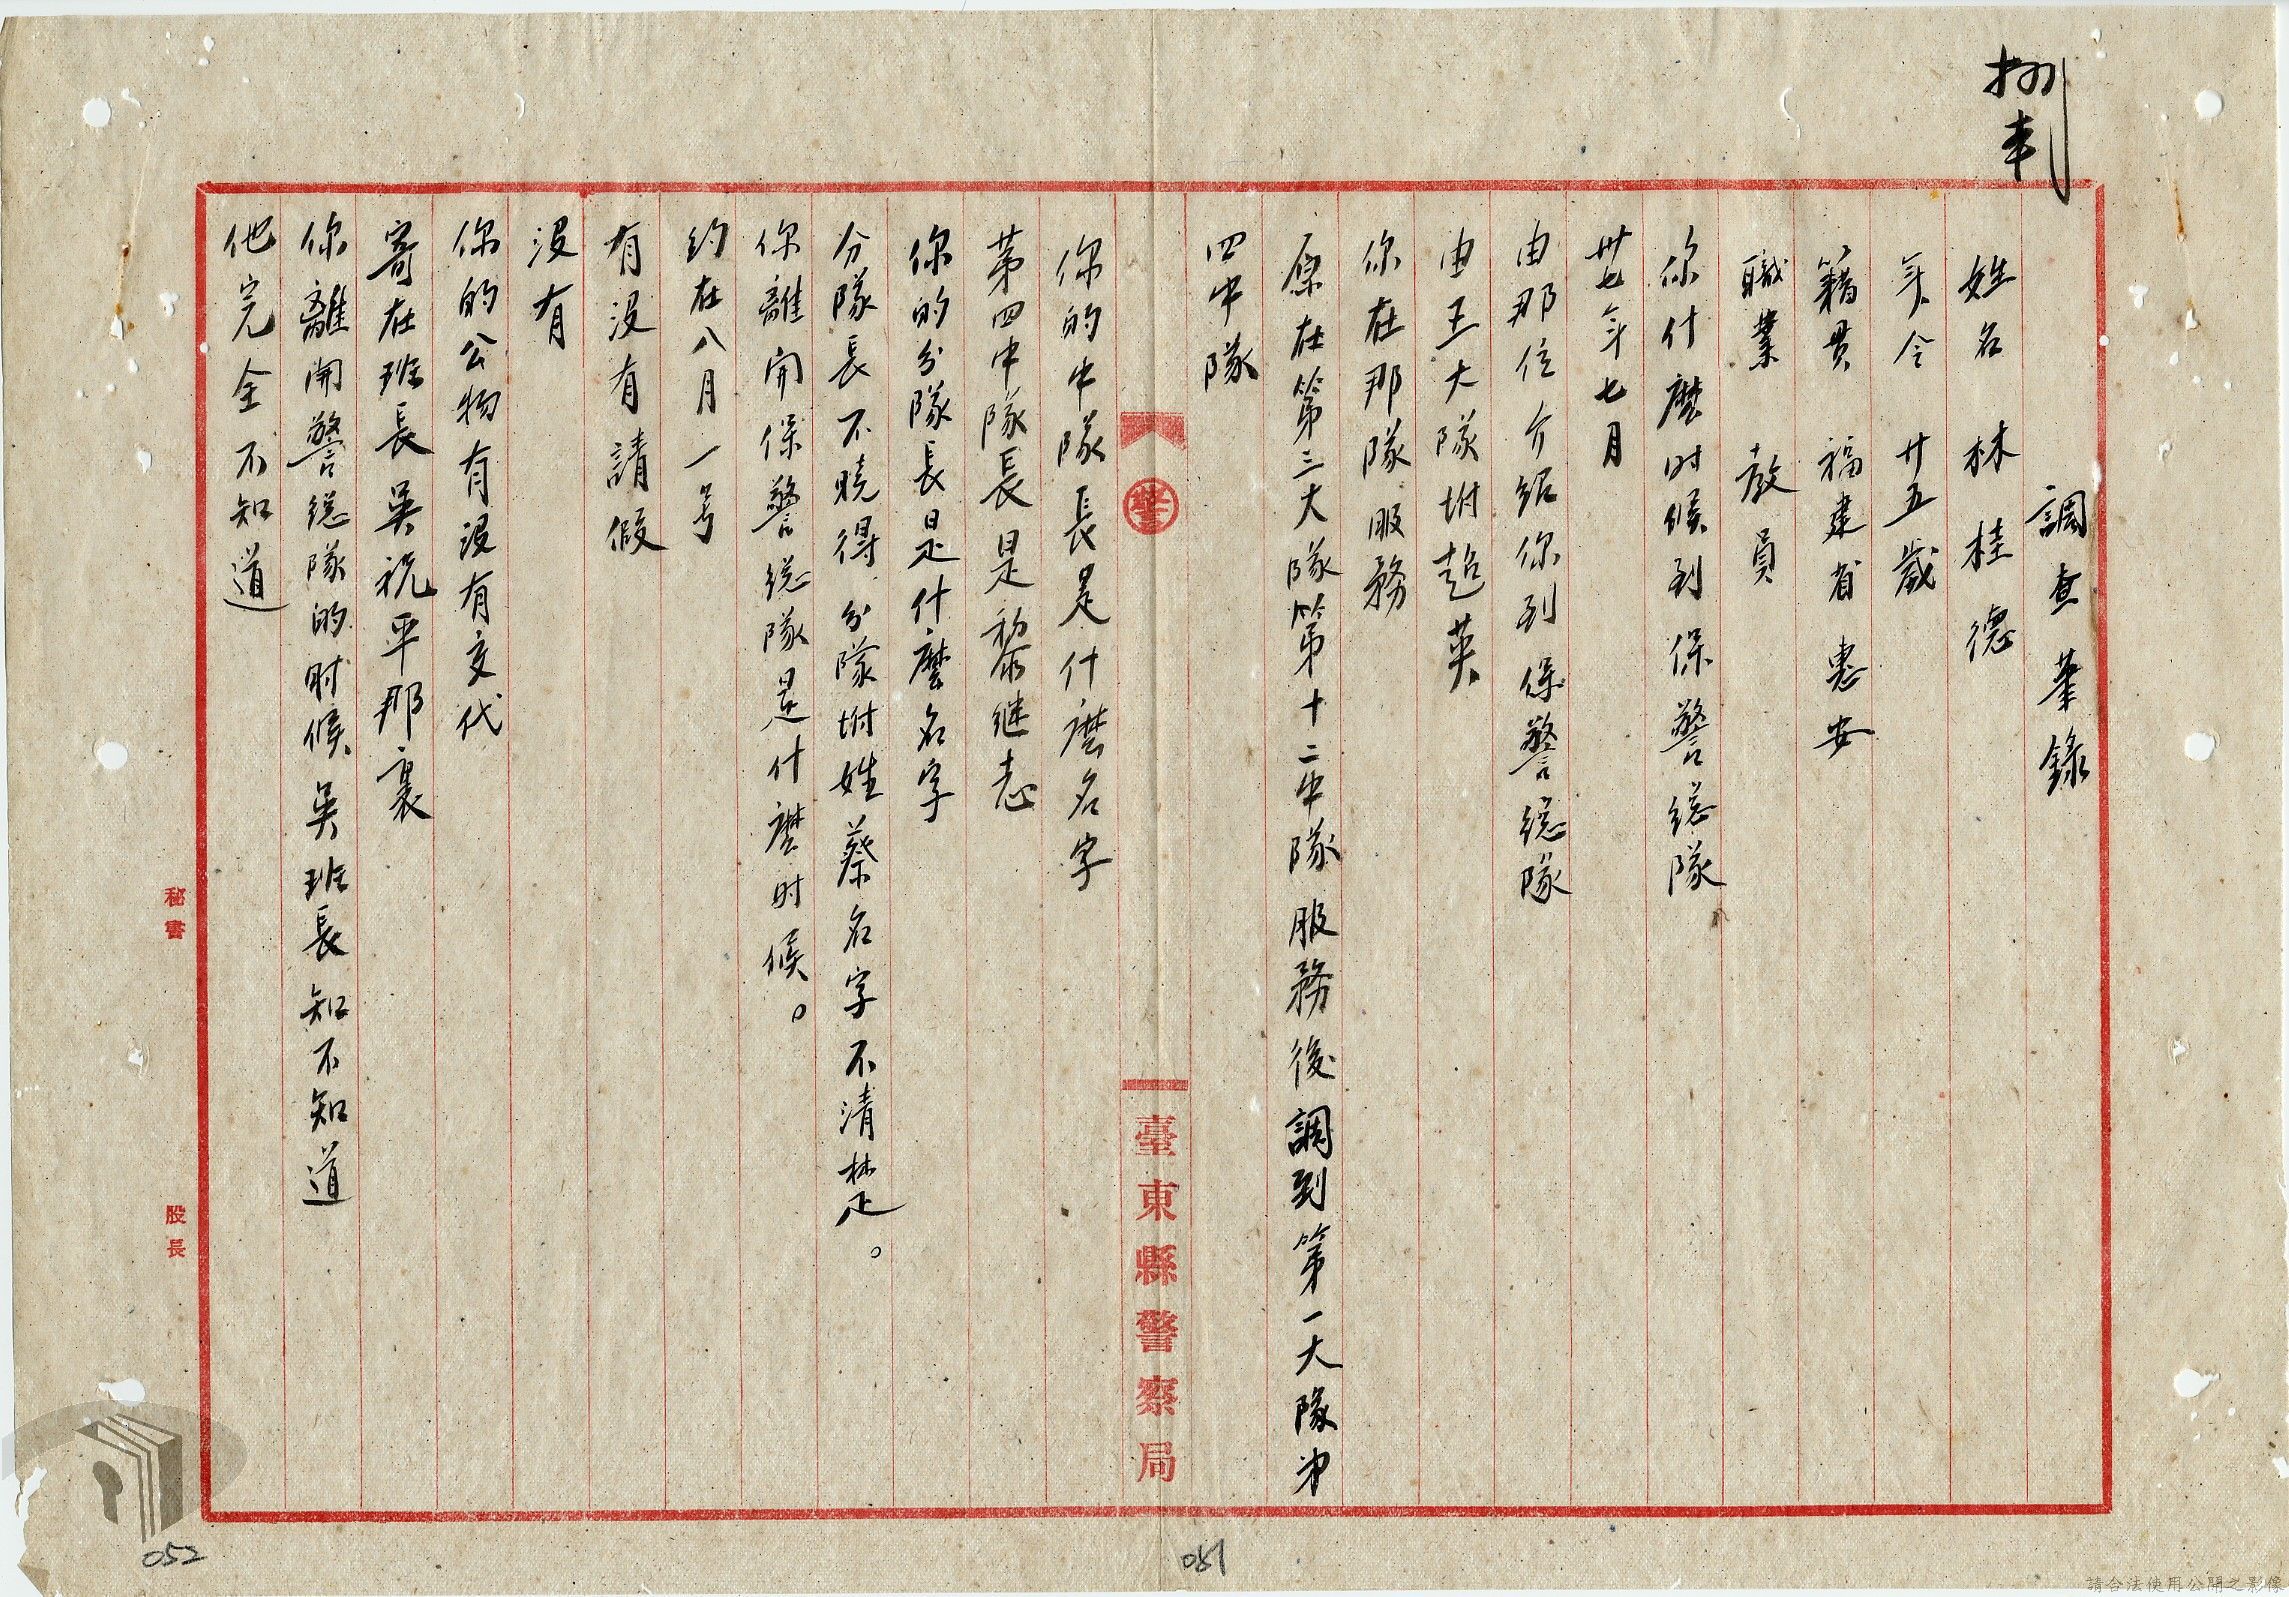 調查筆錄
姓名 林桂德
年令 廿五歲
籍貫 福建省惠安
職業 教員
你什麽时候到保警総隊
卅七年七月
由那位介紹你到保警総隊
由王大隊坿超英
你在那隊服務
原在第三大隊第十二中隊服務後調到第一大隊第
四中隊
警
臺東縣警察局
你的中隊長是什麽名字
第四中隊長是黎继志
你的分隊長是什麽名字
分隊長不曉得.分隊坿姓蔡名字不清楚。
你離開保警総隊是什麽时候。
約在八月一号
有沒有請假
沒有
你的公物有沒有交代
寄在班長吳祝平那裏
你離開警総隊的时候吳班長知不知道
他完全不知道
秘書
股長
052
051
請合法使用公開之影像